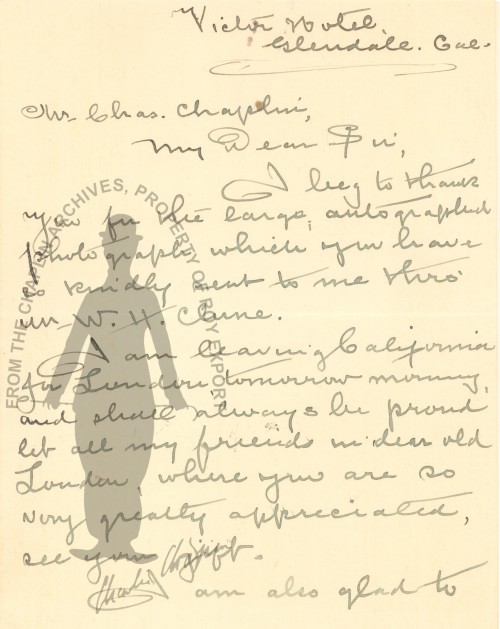 Victor Hotel,
Glendale. Cal.
Mr Chas. Chaplin,
My Dear Sir,
I beg to thank
you for the large, autographed
photograph, which you have
so kindly sent to me thro'
Mr W. H.
I am leaving California
for London tomorrow morning,
and shall always be proud
let all my friends in dear old
London, where you are so
very greatly appreciated,
see your gift.
am also glad to
FROM THE CHAPLIN ARCHIVES, PROPERTY OF ROY EXPORT